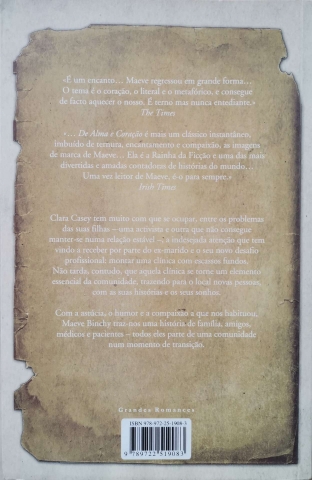 «É um encanto… Maeve regressou em grande forma…
O tema é o coração, o literal e o metafórico, e consegue
de facto aquecer o nosso. É terno mas nunca entediante.»
The Times
«… De Alma e Coração é mais um clássico instantâneo,
imbuído de ternura, encantamento e compaixão, as imagens
de marca de Maeve… Ela é a Rainha da Ficção e uma das mais
divertidas e amadas contadoras de histórias do mundo…
Uma vez leitor de Maeve, é-o para sempre.»
Irish Times
Clara Casey tem muito com que se ocupar, entre os problemas
das suas filhas – uma activista e outra que não consegue
manter-se numa relação estável – a indesejada atenção que tem
vindo a receber por parte do ex-marido e o seu novo desafio
profissional: montar uma clínica com escassos fundos.
Não tarda, contudo, que aquela clínica se torne um elemento
essencial da comunidade, trazendo para o local novas pessoas,
com as suas histórias e os seus sonhos.
Com a astúcia, o humor e a compaixão a que nos habituou,
Maeve Binchy traz-nos uma história de família, amigos,
médicos e pacientes – todos eles parte de uma comunidade
num momento de transição.
Grandes Romances
ISBN 978-972-25-1908-3
9 789722 519083